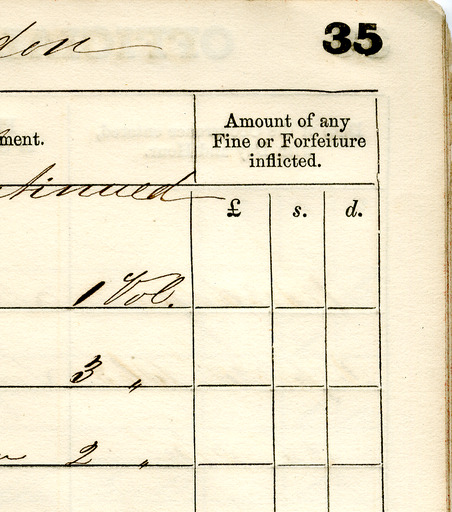 don
35
ment.
Amount of any
Fine or Forfeiture
inflicted.
tinued
£ s. d.
1 Vol.
3 "
2 "